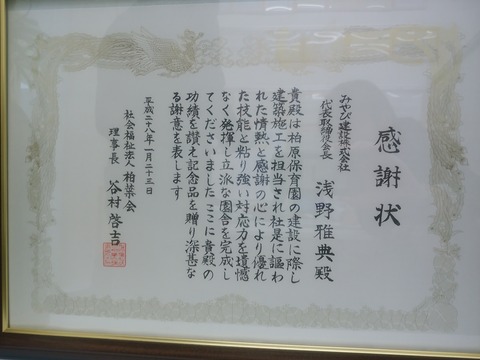 感謝状
みやび建設株式会社
代表取締役会長
浅野雅典殿
貴殿は柏原保育園の建設に際し
建築施工を担当され社是に謳わ
れた情熱と感謝の心により優れ
た技能と粘り強い対応力を遺憾
なく発揮し立派な園舎を完成し
てくださいましたここに貴殿の
功績を讃え記念品を贈り深甚な
る謝意を表します
平成二十八年一月二十三日
社会福祉法人柏葉会
理事長 谷村啓吉